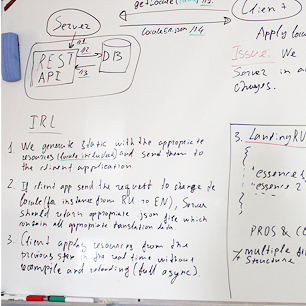 Server
Client
Apply loca
Issue: We
Server in a
changes.
REST
API
DB
IRL
1. We generate static with the appropriate
resources (locale included) and send them to
the client application
2. If client app send the request to change the
locale (for instance from RU to EN), Server
should return appropriate .json file which
contain all appropriate translation data
3. Client apply resources from the
previous step in the real time without
recompile and reloading (full async).
3. LandingRU
{
"essence 1
"essence 2
}
PROS & CO
multiple
structure